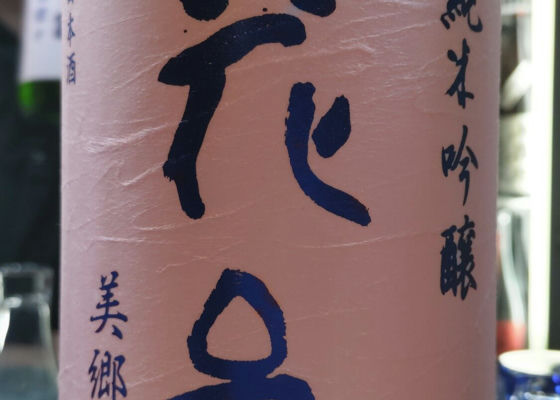 純米吟醸
花
日本酒
美郷